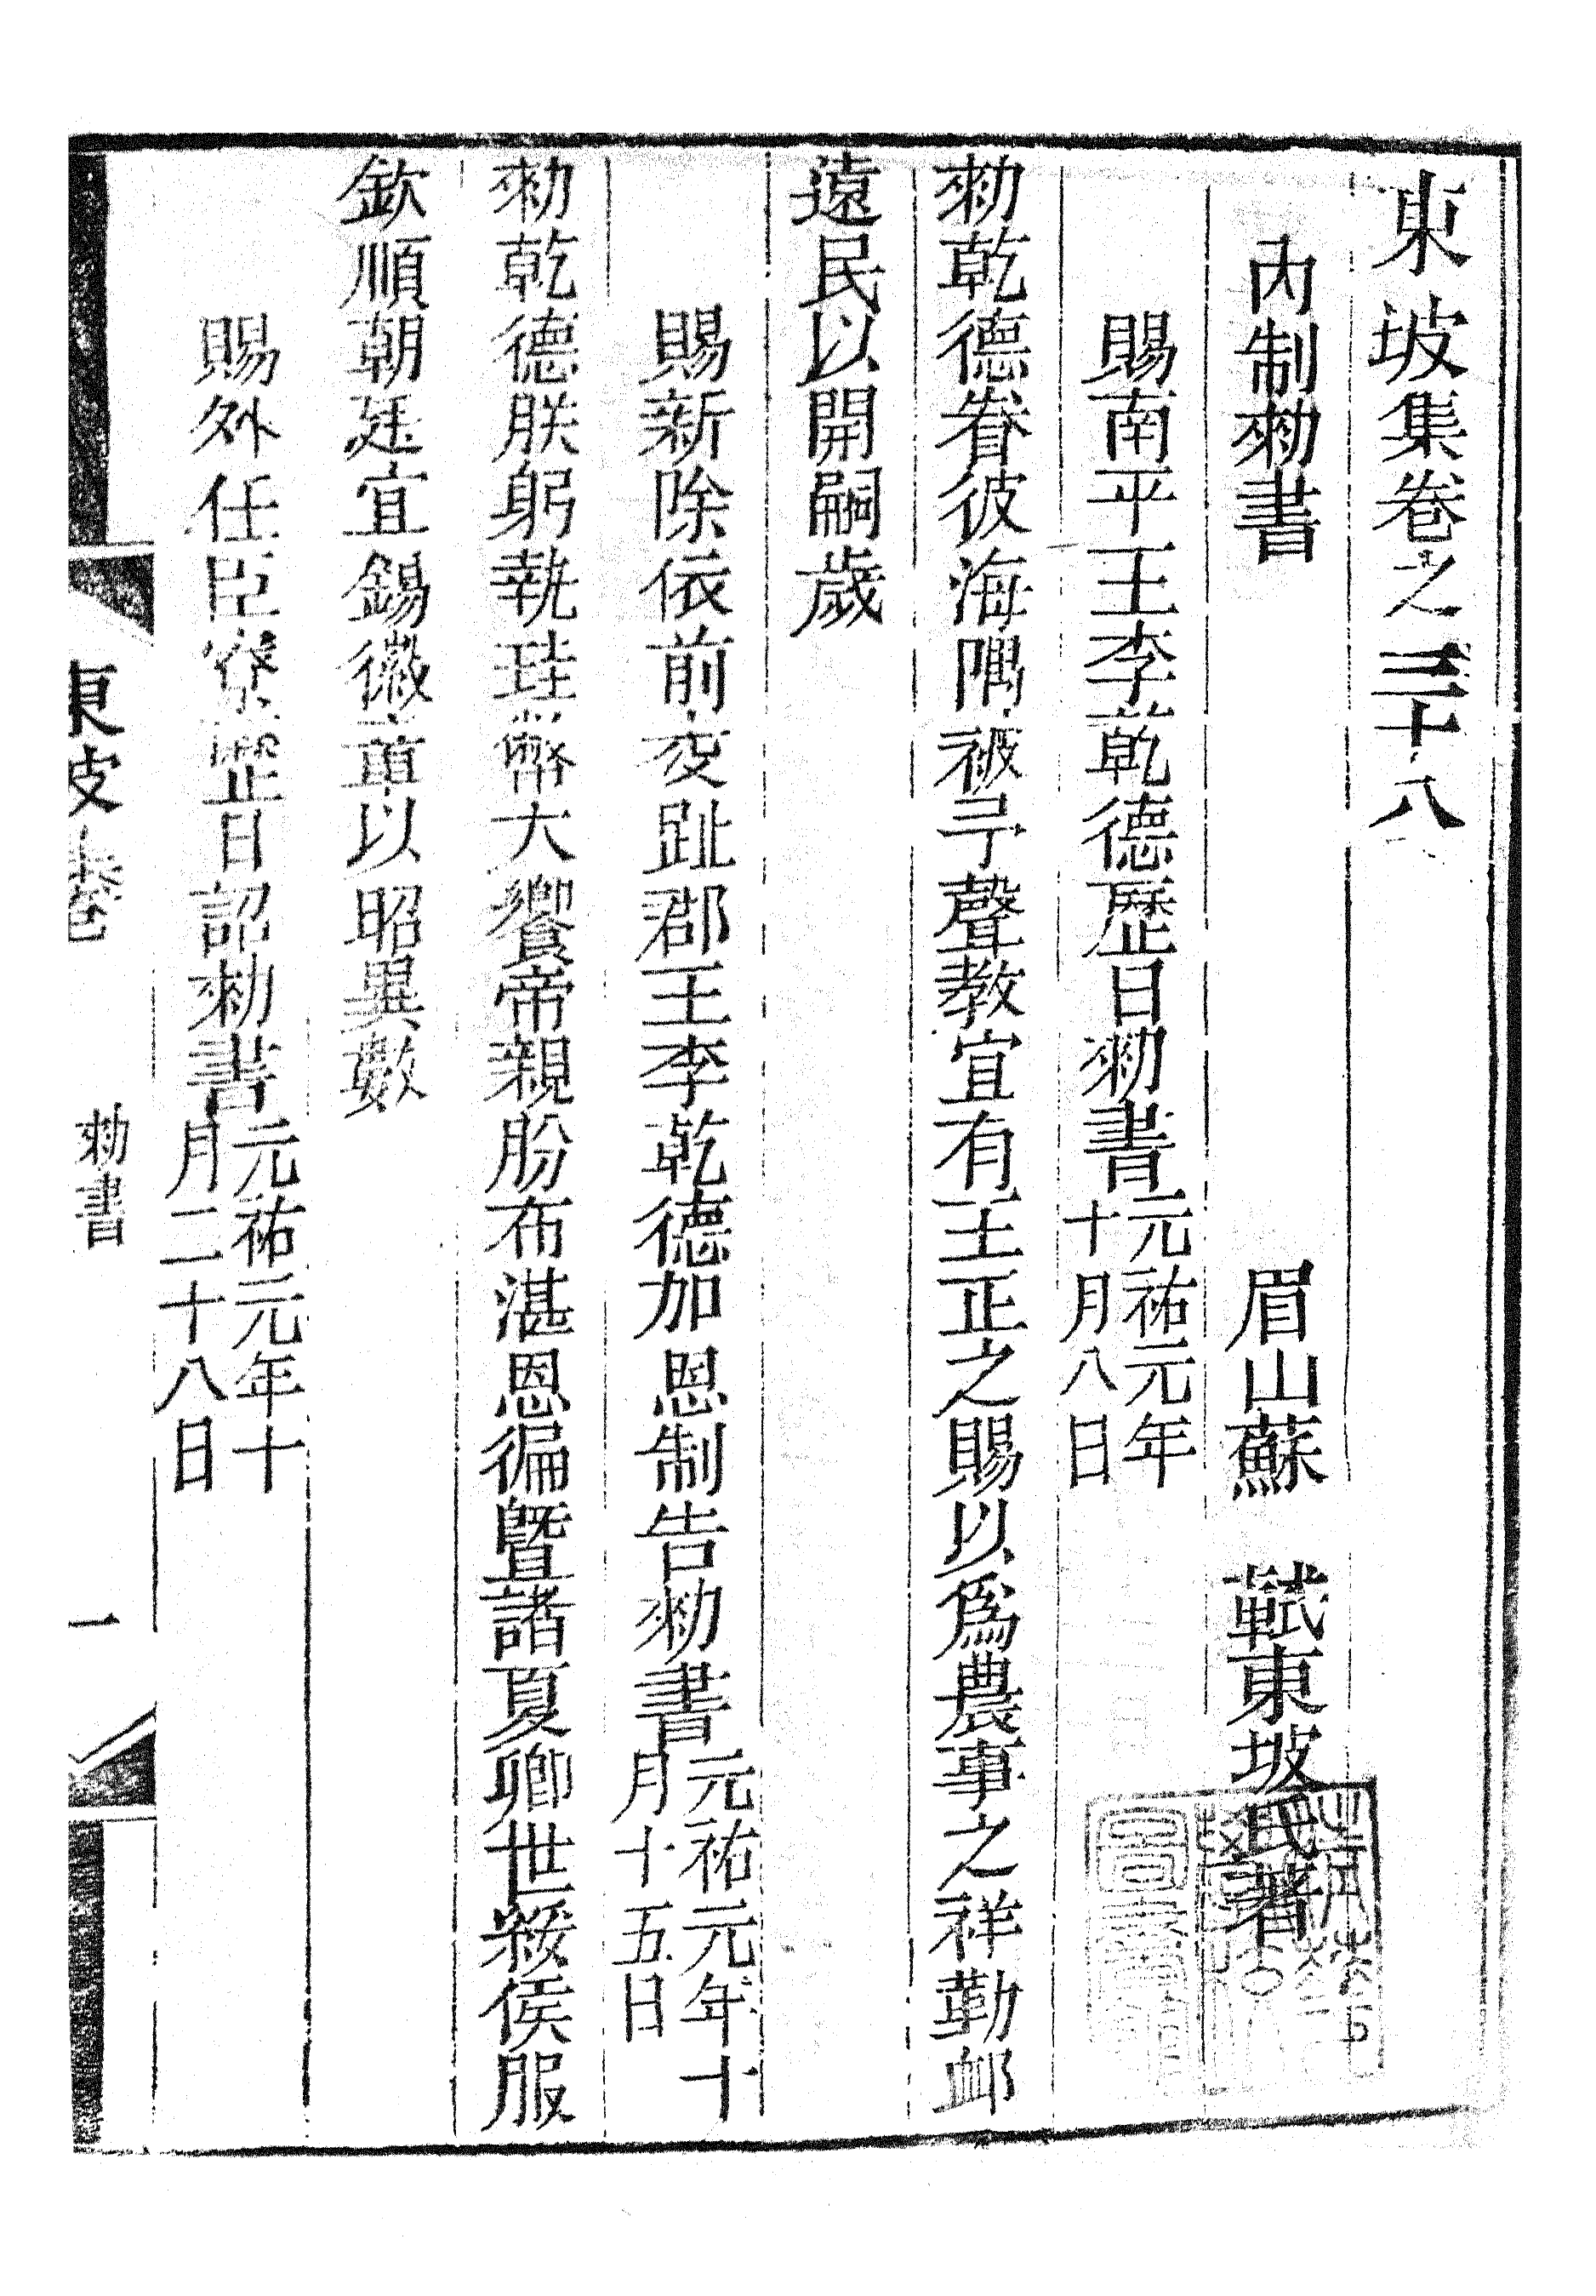 東坡集卷之三十八
內制勑書
眉山蘇 軾東坡氏著
賜南平王李乾德歷日勑書元祐元年十月八日
勑乾德眷彼海隅被予聲教宜有王正之賜以爲農事之祥勤䘏
遠民以開嗣歲
賜新除依前交趾郡王李乾德加恩制告勑書元祐元年十月十五日
勑乾德朕躬執珪幣大饗帝親肦布湛恩徧曁諸夏卿世綏侯服
欽順朝廷宜錫徽章以昭異數
賜外任臣寮歷日詔勑書元祐元年十月二十八日
東坡卷
勑書
一